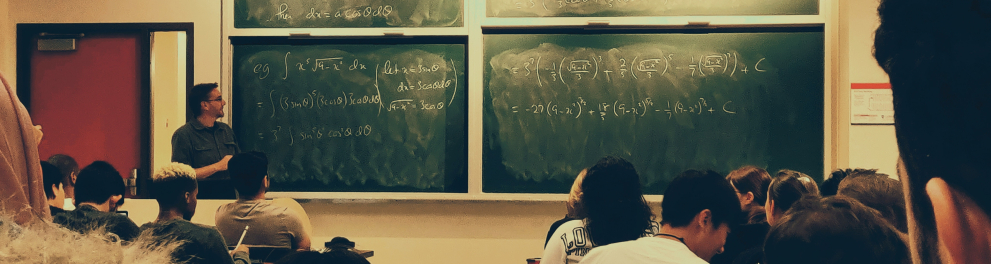 then dx = a cosθ dθ
eg ∫ x⁵ √(9-x²) dx (let x = 3sinθ
dx = 3cosθ dθ
√(9-x²) = 3cosθ)
= ∫ (3 sinθ)⁵ (3cosθ) 3cosθ dθ
= 3⁷ ∫ sin⁵θ cos²θ dθ
= 3⁷ (-1/3 (√(9-x²)/3)³ + 2/5 (√(9-x²)/3)⁵ - 1/7 (√(9-x²)/3)⁷) + C
= -27 (9-x²)^(3/2) + 18/5 (9-x²)^(5/2) - 1/7 (9-x²)^(7/2) + C
LO